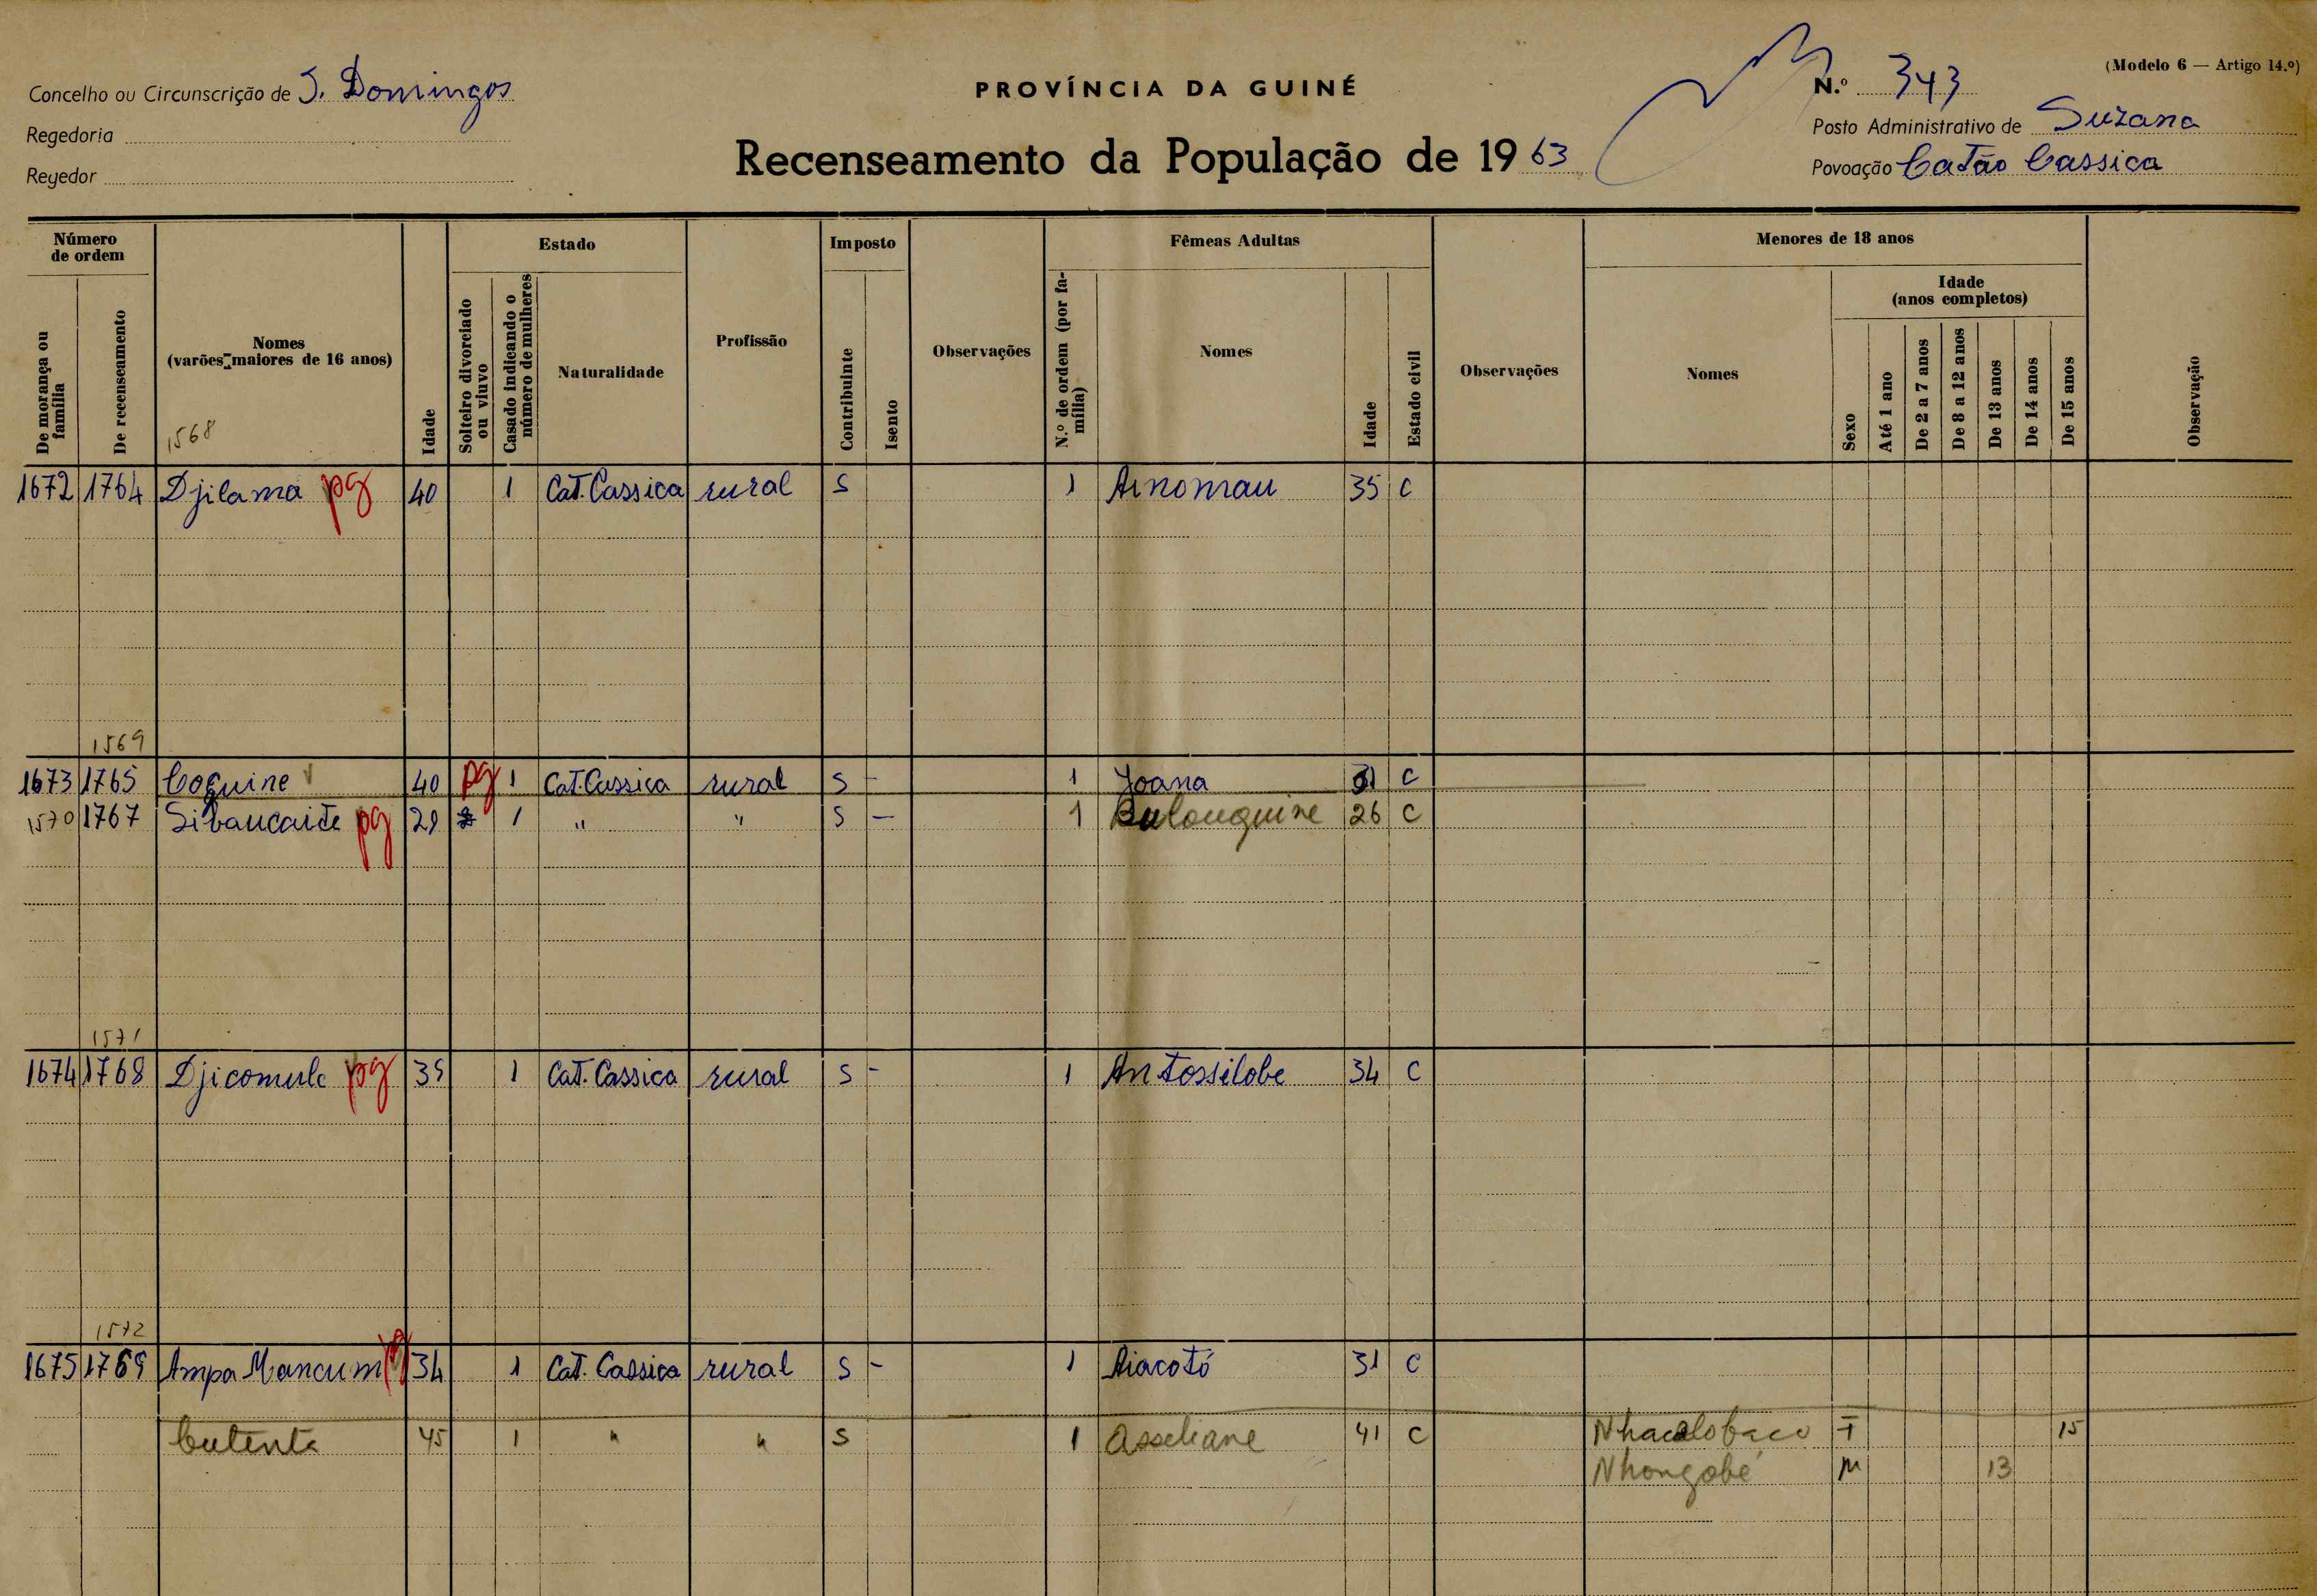 (Modelo 6 — Artigo 14.º)
Concelho ou Circunscrição de S. Domingos
PROVÍNCIA DA GUINÉ
N.º 343
Regedoria
Posto Administrativo de Suzana
Recenseamento da População de 1963
Regedor
Povoação Catão Cassica
Número de ordem
De morança ou família
De recenseamento
Nomes
(varões maiores de 16 anos)
1568
Idade
Estado
Solteiro divorciado ou viuvo
Casado indicando o número de mulheres
Naturalidade
Profissão
Imposto
Contribuinte
Isento
Observações
Fêmeas Adultas
N.º de ordem (por família)
Nomes
Idade
Estado civil
Observações
Menores de 18 anos
Nomes
Sexo
Idade
(anos completos)
Até 1 ano
De 2 a 7 anos
De 8 a 12 anos
De 13 anos
De 14 anos
De 15 anos
Observação
1672 1764 Djilama pg 40 1 Cat. Cassica rural S 1 Ainomau 35 C
1569
1673 1765 Coquine 40 pg 1 Cat. Cassica rural S - 1 Joana 31 C
1570 1767 Sibaucaite pg 29 1 " " S — 1 Bulouquine 26 C
1571
1674 1768 Djicomule pg 35 1 Cat. Cassica rural S - 1 Antossilobe 34 C
1572
1675 1769 Ampa Mancum 34 1 Cat. Cassica rural S - 1 Aiacotó 31 C
Cutenta 45 1 " " S 1 Asseliane 41 C Nhacalobaco F 15
Nhongobé M 13